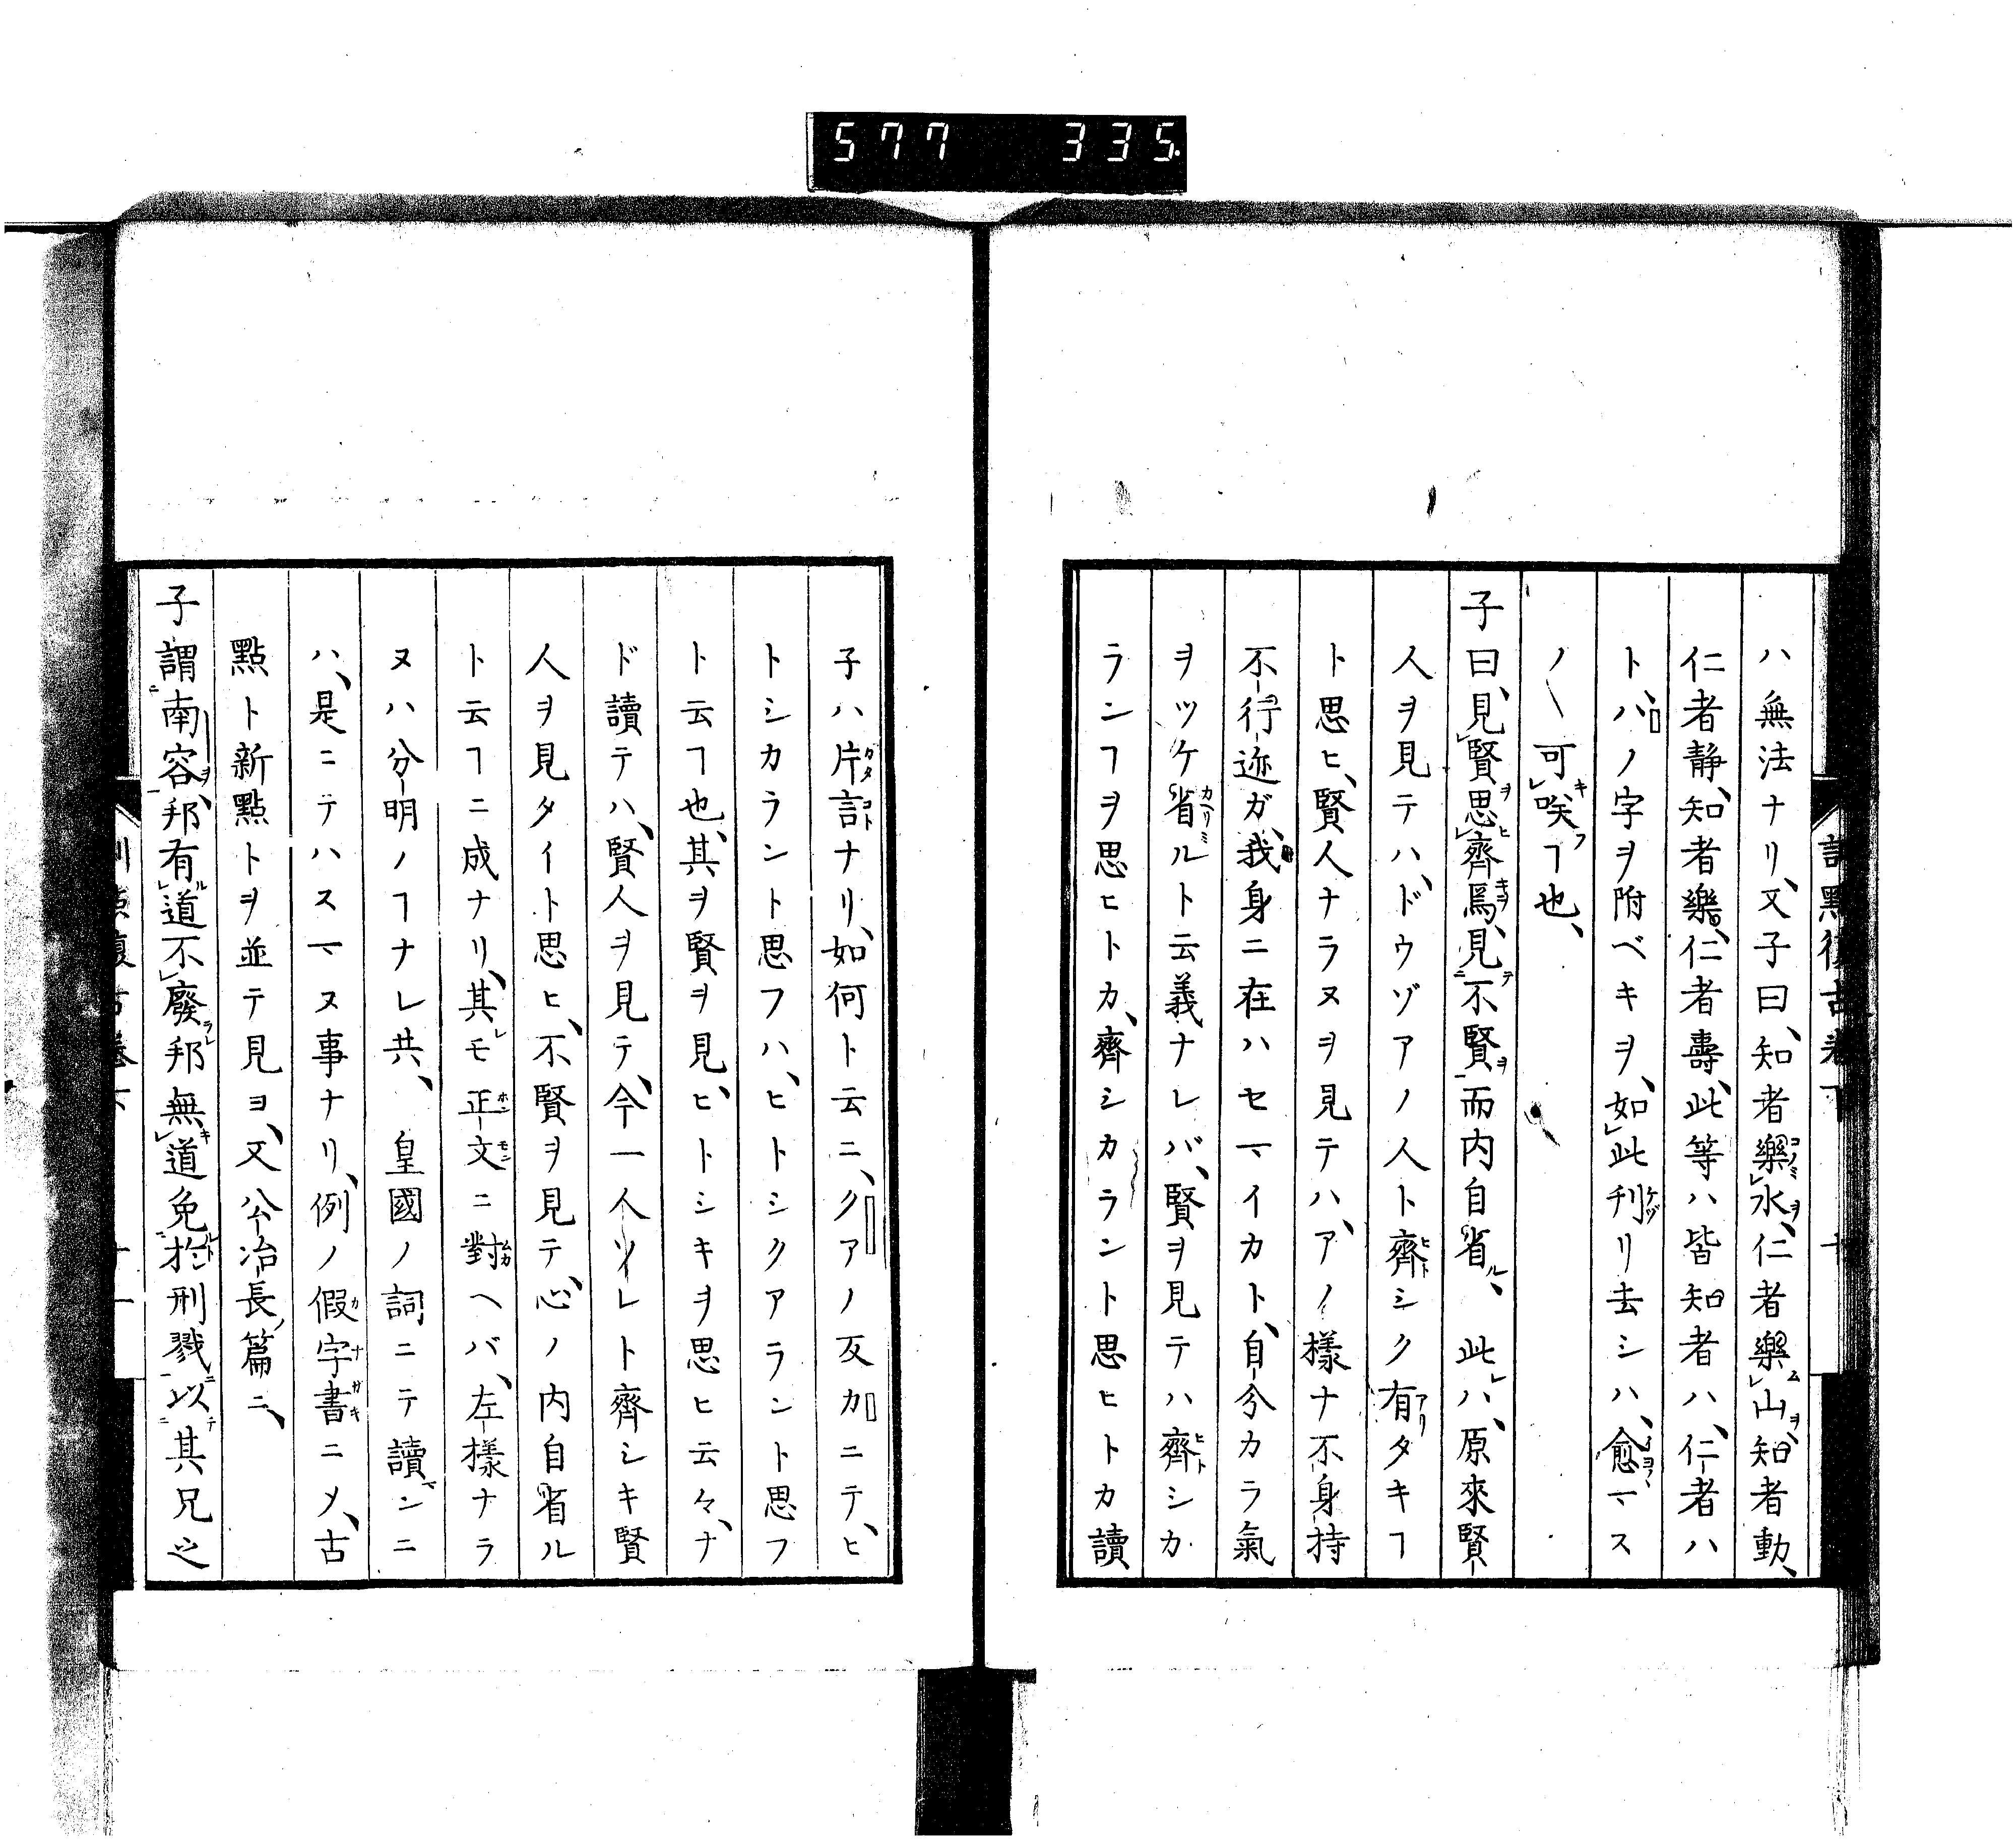 577 335.
ハ無法ナリ、又子曰、知者樂水、仁者樂山、知者動、
仁者靜、知者樂、仁者壽、此等ハ皆知者ハ、仁者ハ
ト、ハノ字ヲ附ベキヲ、如此刊リ去シハ、愈〻ス
ノ〱可咲ヿ也、
子曰、見賢思齊焉、見不賢而内自省、此ハ、原來賢
人ヲ見テハ、ドウゾアノ人ト齊シク有タキヿ
ト思ヒ、賢人ナラヌヲ見テハ、アノ樣ナ不身持
不行迹ガ、我身ニ在ハセヌイカト、自分カラ氣
ヲツケ省ルト云義ナレバ、賢ヲ見テハ齊シカ
ランヿヲ思ヒトカ、齊シカラント思ヒトカ讀
子ハ片言ナリ、如何ト云ニ、クアノ反カニテ、ヒ
トシカラント思フハ、ヒトシクアラント思フ
ト云ヿ也、其ヲ賢ヲ見、ヒトシキヲ思ヒ云々、ナ
ド讀テハ、賢人ヲ見テ、今一人ソレト齊シキ賢
人ヲ見タイト思ヒ、不賢ヲ見テ、心ノ内自省ル
ト云ヿニ成ナリ、其モ正文ニ對ヘバ、左樣ナラ
ヌハ分明ノヿナレ共、皇國ノ詞ニテ讀ンニ
ハ、是ニテハスマヌ事ナリ、例ノ假字書ニメ、古
點ト新點トヲ並テ見ヨ、又公冶長篇ニ、
子謂南容、邦有道不廢邦無道免於刑戮以其兄之